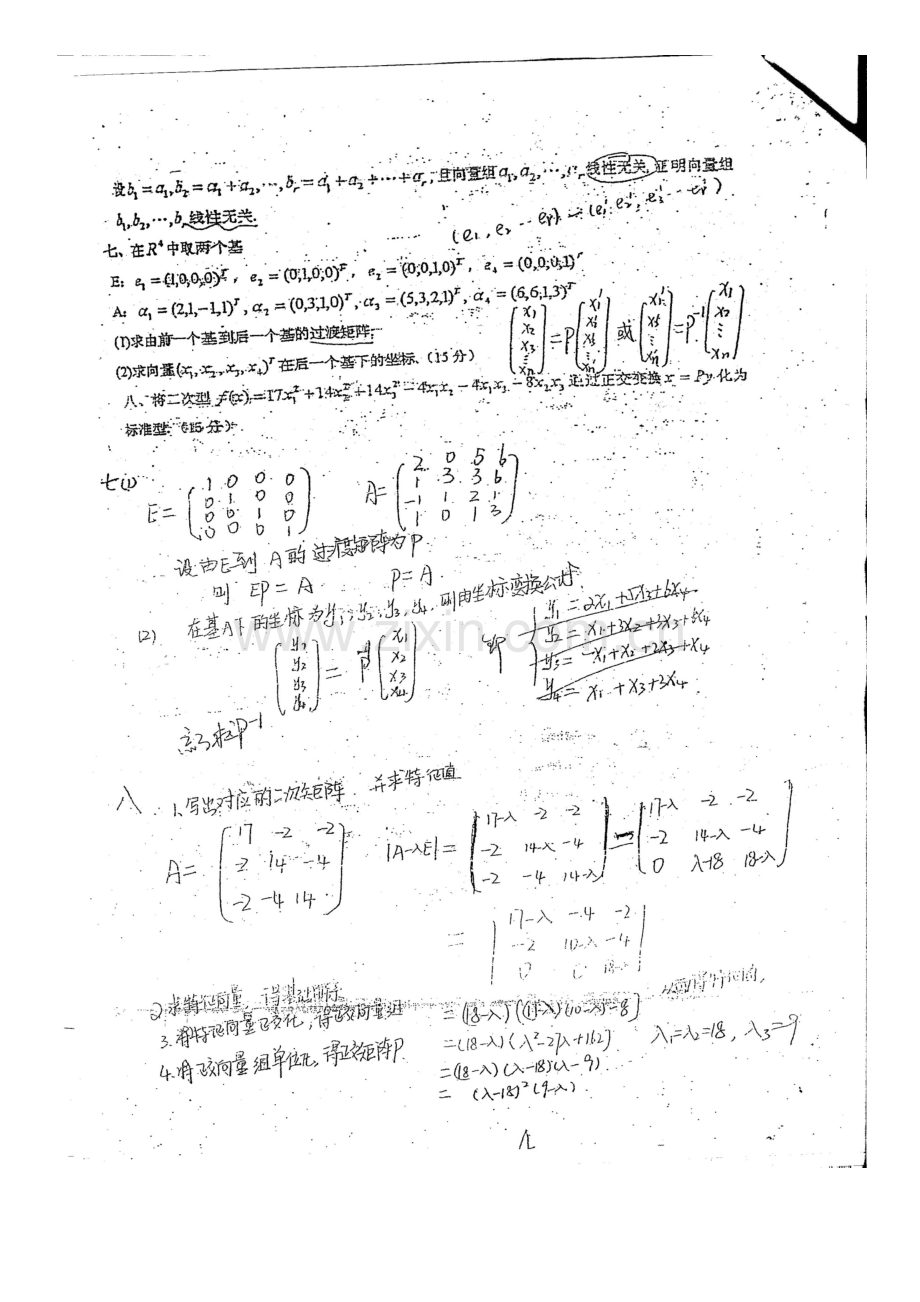 设b₁=a₁,b₂=a₁+a₂,⋯,bᵣ=a₁+a₂+⋯+aᵣ,且向量组a₁,a₂,⋯,aᵣ线性无关,证明向量组
b₁,b₂,⋯,bᵣ线性无关.
(e₁,e₂⋯eₚ)
七、在R⁴中取两个基
E: e₁=(1,0,0,0)ᵀ, e₂=(0,1,0,0)ᵀ, e₂=(0,0,1,0)ᵀ, e₄=(0,0,0,1)ᵀ
A: α₁=(2,1,-1,1)ᵀ,α₂=(0,3,1,0)ᵀ,α₃=(5,3,2,1)ᵀ,α₄=(6,6,1,3)ᵀ
(1)求由前一个基到后一个基的过渡矩阵;
(x₁ x₂ x₃ ⋮ xₙ)=P(x₁' x₂' x₃' ⋮ xₙ') 或 (x₁' x₂' ⋮ xₙ')=P⁻¹(x₁ x₂ ⋮ xₙ)
(2)求向量(x₁,x₂,x₃,x₄)ᵀ在后一个基下的坐标.(15分)
八、将二次型 f(x)=17x₁²+14x₂²+14x₃²-4x₁x₂-4x₁x₃-8x₂x₃ 通过正交变换x=Py化为
标准型.(15分)
七(1)
E=
1 0 0 0
0 1 0 0
0 0 1 0
0 0 0 1
A=
2 0 5 6
1 3 3 6
-1 1 2 1
1 0 1 3
设由E到A的过渡矩阵为P
则 EP=A P=A
(2) 在基A下的坐标为y₁,y₂,y₃,y₄,则由坐标变换公式
(y₁ y₂ y₃ y₄)=P⁻¹(x₁ x₂ x₃ x₄)
即
y₁=2x₁+5x₃+6x₄
y₂=x₁+3x₂+3x₃+6x₄
y₃=-x₁+x₂+2x₃+x₄
y₄=x₁+x₃+3x₄
求P-1
www.zixin.com.cn
八 1.写出对应的二次矩阵.并求特征值
A=
17 -2 -2
-2 14 -4
-2 -4 14
|A-λE|=
17-λ -2 -2
-2 14-λ -4
-2 -4 14-λ
=
17-λ -2 -2
-2 14-λ -4
0 λ-18 18-λ
=
17-λ -4 -2
-2 10-λ -4
0 0 18-λ
2.求特征向量,得基础解系
3.将特征向量正交化,得正交向量组
4.将正交向量组单位化,得正交矩阵P
=(18-λ)[(17-λ)(10-λ)-8]
=(18-λ)(λ²-27λ+162)
=(18-λ)(λ-18)(λ-9)
=(λ-18)²(9-λ)
λ₁=λ₂=18, λ₃=9